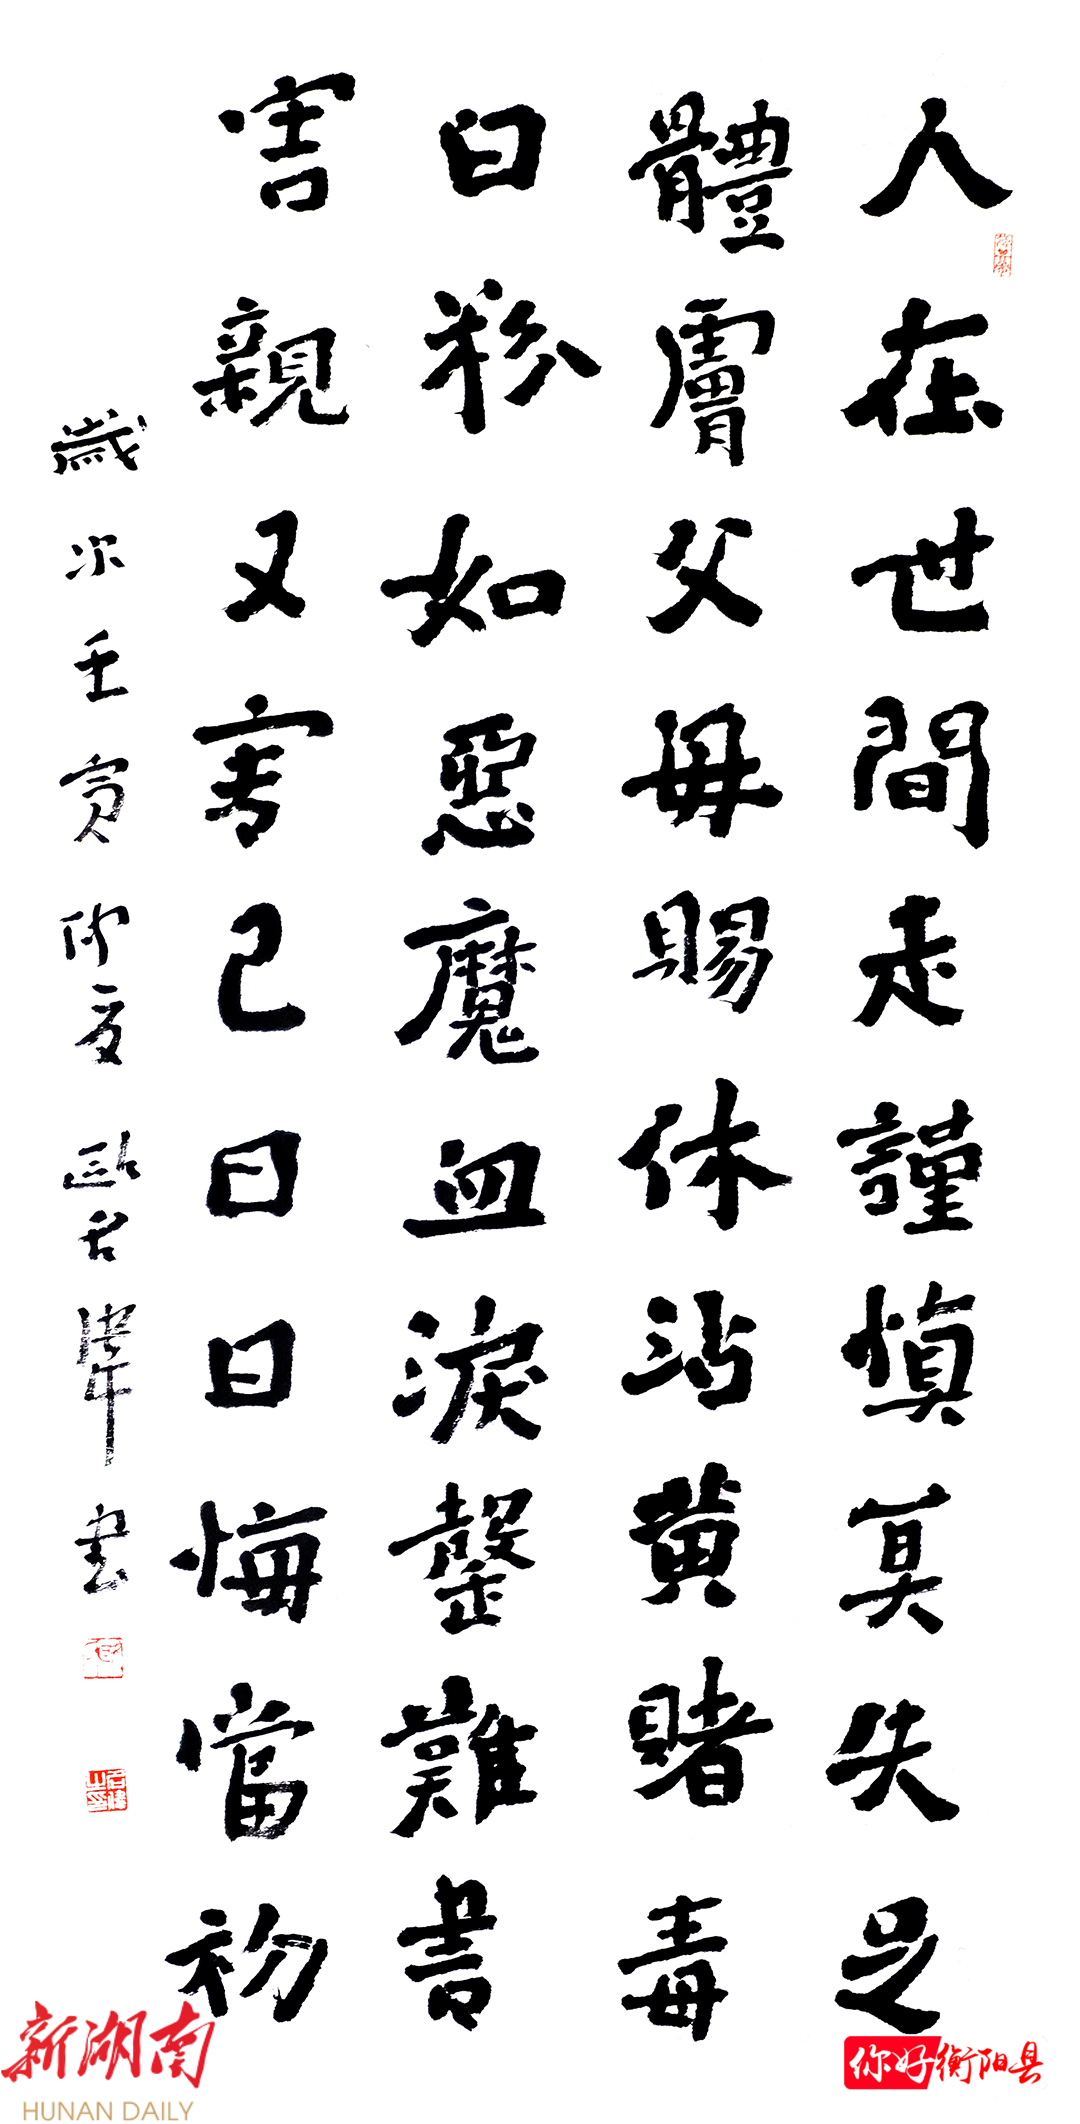 人在世間走謹慎莫失足
體膚父母賜休沾黄賭毒
白粉如惡魔血淚罄難書
害親又害己日日悔當初
歲次壬寅仲夏歐名偉書
新湖南
HUNAN DAILY
你好衡阳县